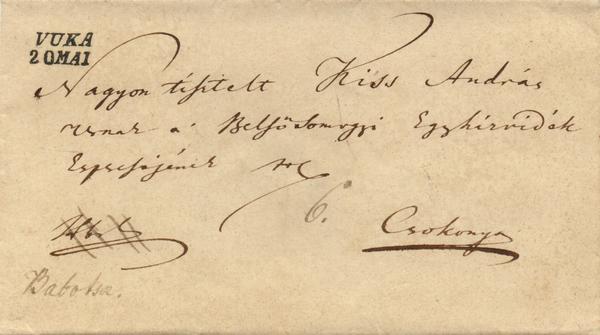 VUKA
20MAI
Nagyon tisztelt Kiss András
Urnak a' Belső Somogyi Egyházvidék
Esperesjének
6.
Csokonya
Babotsa.